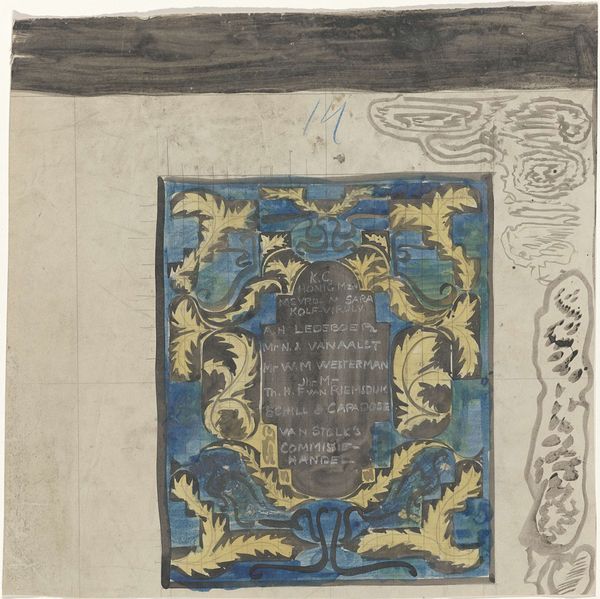 14
K.C.
HONIG MZN
MEVROUW SARA
KOLF-VIRULY
A.H. LEDEBOER
Mr N.J. VAN AALST
Mr W.M. WESTERMAN
Jhr M
Th. H. F. VAN RIEMSDIJK
SCHILL & CAPADOSE
VAN STOLK'S
COMMISSIE-
HANDEL